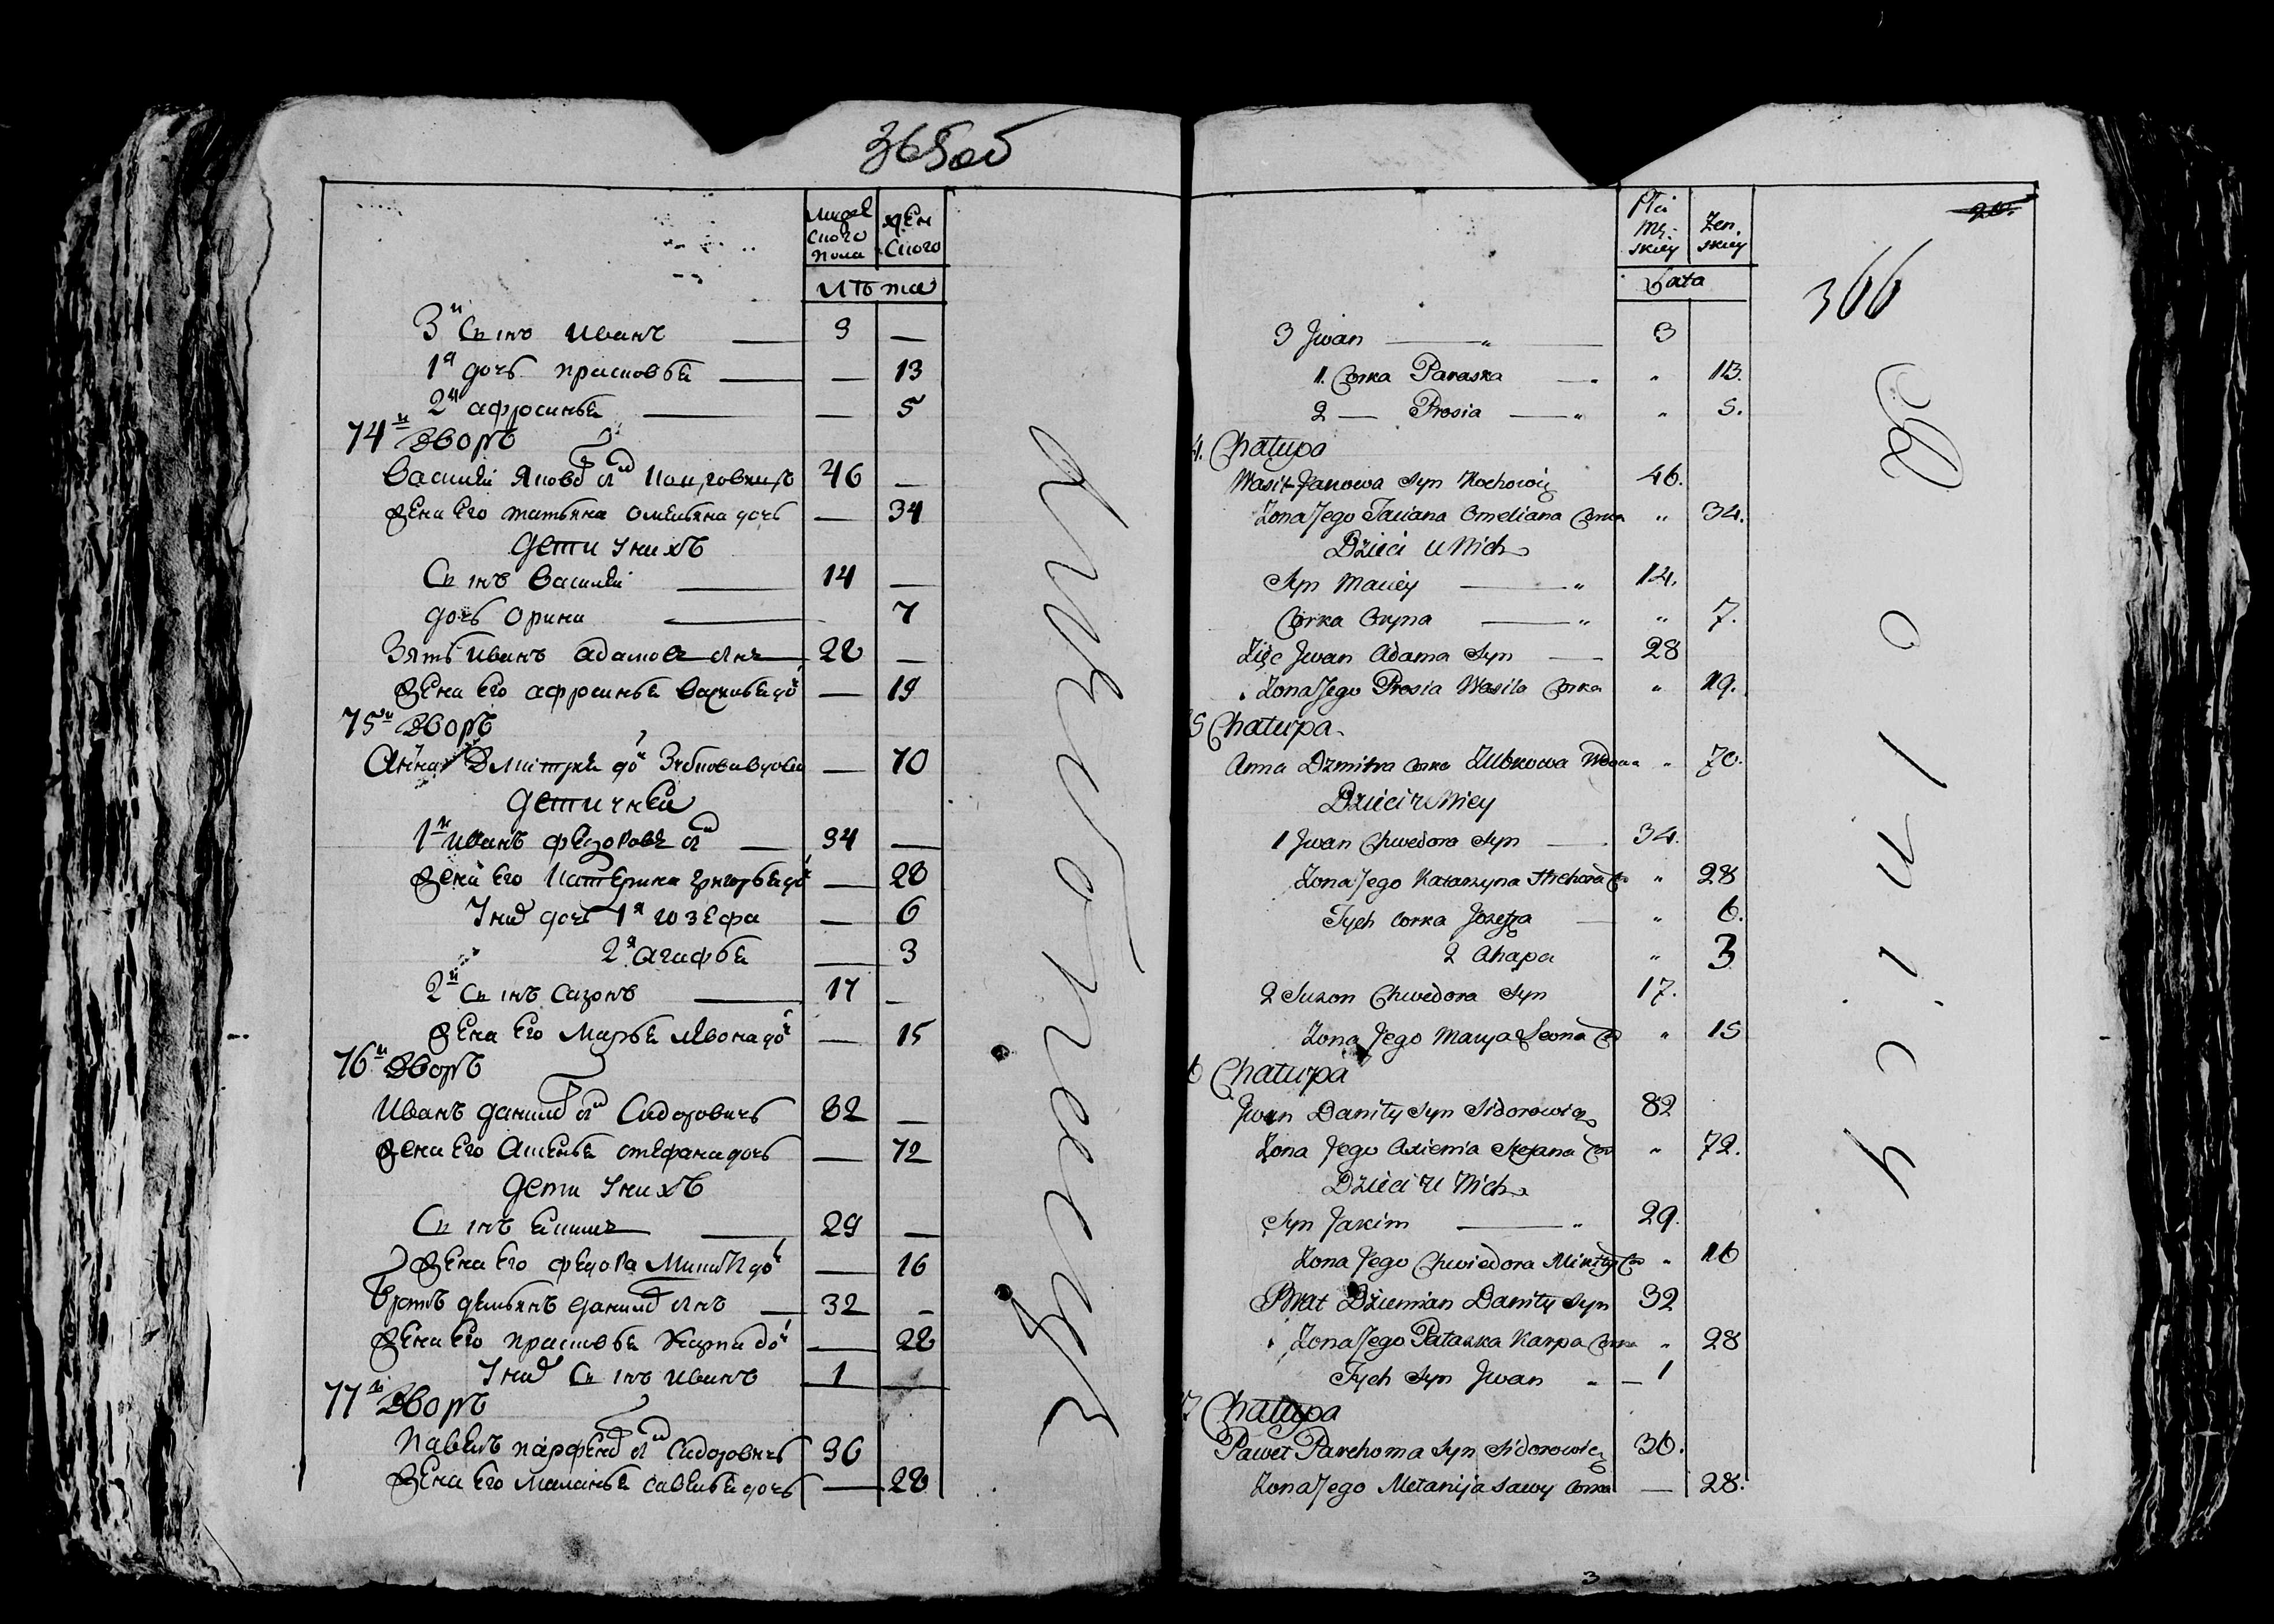 365 об
мужескаго пола женскаго
лѣта
3й Сынъ Иванъ — 3 —
1я дочь прасковья — — 13
2я афросинья — — 5
74й Дворъ
Василий Яковъ 46 —
жена Его татьяна омельяна дочь — 34
дети у нихъ
Сынъ Василий — 14 —
дочь орина — 7
Зять иванъ адамовъ сынъ 28 —
жена Его афросинья Василья до — 19
75й Дворъ
Анна Дмитрия до — 70
дети у неи
1й иванъ федоровъ сы — 34 —
жена Его Катерина григорья до — 28
У них дочь 1я юзефа — 6
2я Агафья — 3
2й Сынъ Сазонъ — 17 —
жена Его Марья Лявона до — 15
76й Дворъ
Иванъ данил сы Сидоровичь 82 —
жена Его Аксенья стефана дочь — 72
дети у нихъ
Сынъ — 29 —
жена Его федора Микит до — 16
Братъ демьянъ данил сынъ — 32 —
жена Его прасковья Карпа до — 28
У них Сынъ иванъ 1
77й Дворъ
Павелъ парфен сы Сидоровичь 36
жена Его маланья савелья дочь — 28
Płci Mę-skiey Żen-skiey
Lata
366
3 Jwan — " — 3
1. Corka Paraska — " " 13.
2 — Prosia — " " 5.
4. Chałupa
Wasil Janowa Syn Kochowicz 46.
Żona Jego Taciana Omeliana Corka " 34.
Dzieci u Nich
Syn Maciey — " 14.
Corka Oryna — " " 7.
Zięc Jwan Adama Syn — 28
Żona Jego Prosia Wasila Corka " 19.
5 Chałupa
Anna Dzmitra Corka Zubkowa Wdowa " 70.
Dzieci u Niey
1 Jwan Chwedora Syn — 34.
Żona Jego Katarzyna Hrehora Co " 28
Tych Corka Jozefa — " 6.
2 Ahapa " 3
2 Suzon Chwedora Syn 17.
Żona Jego Marya Leona Co " 15
6 Chałupa
Jwan Daniły Syn Sidorowicz 82
Żona Jego Axienia Stefana Co " 72.
Dzieci u Nich
Syn Jakim — " 29.
Żona Jego Chwiedora Mikity Co " 16
Brat Dziemian Daniły Syn 32
Żona Jego Pałaszka Karpa Corka " 28
Tych Syn Jwan " — 1
7 Chałupa
Paweł Parchoma Syn Sidorowicz 36.
Żona Jego Mełanija Sawy Corka — 28.
3